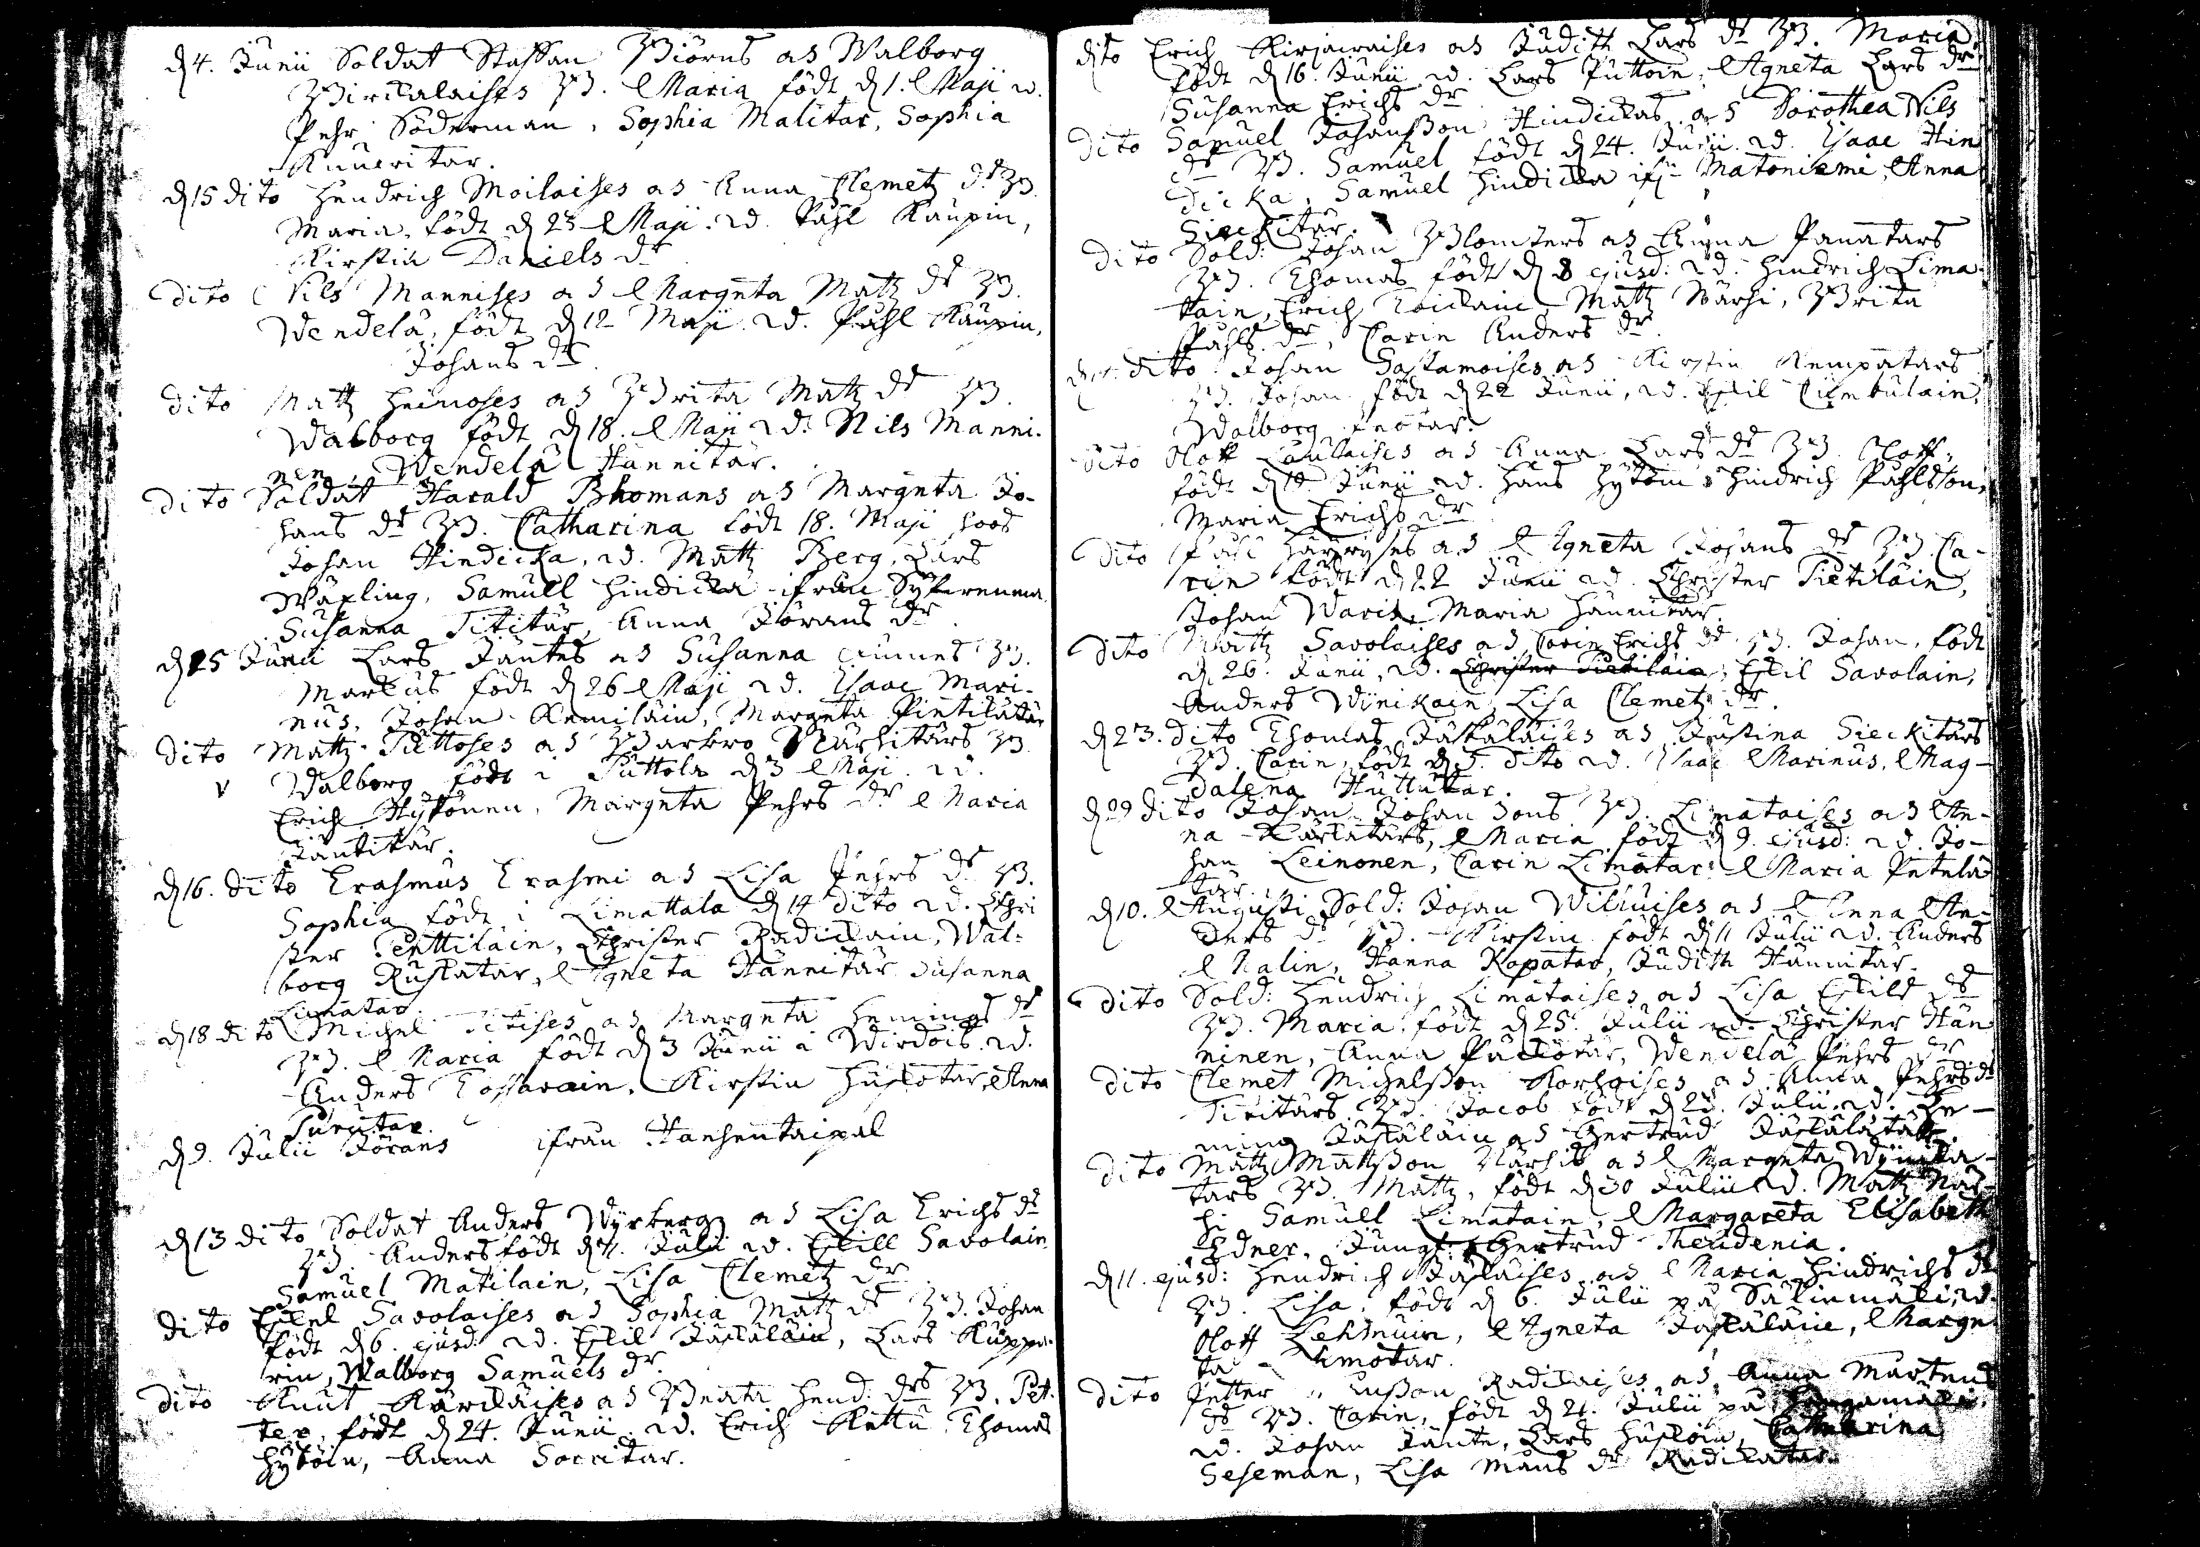 d 4. Junii Soldat Staffan Biörns o S Walborg
Pirkalaises B. Maria födt d 1. Maji w.
Pehr Söderman, Sophia Malitar, Sophia
d 15 dito Hendrich Moilaises o S Anna Clemetz dr B.
Maria, födt d 23 Maji. w. Påhl Kaupin,
Kirstin Daniels dr
dito Nils Mannises o S Margrita Matz dr B.
Wendela, födt d 12 Maji w. Påhl Kaupin,
Johans dr
dito Matz Heinoses o S Brita Matz dr B.
Walborg födt d 18. Maji w. Nils Manni-
nen, Wendela Hannitar.
dito Soldat Harald Bhomans o S Margrita Jo-
hans dr B. Catharina födt 18. Maji hoos
Johan Hindicka, w. Matz Berg, Lars
Wäfling, Samuel Hindicka ifrån
Susanna Tititär, Anna Jörans dr
d 15 Junii Lars Jäntes o S Susanna B.
Markus födt d 26 Maji w. Isaac Mari-
nus, Johan Kemiläin, Margrita Pietilätär
dito Matz Tuttoses o S Barbro Närhitärs B.
v Walborg födt i Puttola d 3 Maji w.
Erich Hyttönen, Margrita Pehrs dr Maria
Jäntitär.
d 16. dito Erasmus Erasmi o S Lisa Pehrs dr B.
Sophia födt i Limattala d 14 dito w. Chri
ster Penttiläin, Christer Radikain, Wal-
borg Ruskatar, Agneta Hännitär Susanna
Limatar.
d 18 dito Michel Titises o S Margrita Hemings dr
B. Maria födt d 3 Junii i Wirdois w.
Anders Tossavain, Kirstin Huskotar, Anna
Pursitar.
d 9. Julii Jörans ifrån Hanhentaipal
d 13 dito Soldat Anders Wyrberg o S Lisa Erichs dr
B. Anders födt d 7. Julii w. Eskill Savolain
Samuel Matilain, Lisa Clemetz dr
dito Eskel Savolaises o S Sophia Matz dr B. Johan
födt d 6. ejusd: w. Eskil Jäskäläin, Lars Kuppa-
rin, Walborg Samuels dr.
dito Knut Kärckäises o S Beata Hend: drs B. Pet-
ter, födt d 24. Junii w. Erich Kettu Thomas
Hytöin, Anna Sorritar.
dito Erich Kirjavaises o S Judith Lars dr B. Maria
födt d 16. Junii w. Lars Puttoin, Agneta Lars dr
Susanna Erichs dr
dito Samuel Johansson Hindickas o S Dorothea Nils
dr B. Samuel födt d 24. Junii w. Isaac Hin
dicka, Samuel Hindicka ifr Matoniemi, Anna
Sieckitär.
dito Sold: Johan Blomsters o S Anna Panatars
B. Thomas födt d 8 ejusd: w. Hindrich Lima-
tain, Erich Matz Närhi, Brita
Påhls dr, Carin Anders dr.
dito Johan Sastamoises o S Kirstin Kempatars
B. Johan födt d 22 Junii, w. Eskil Cumbulain,
Walborg
dito Oloff Laulaises o S Anna Lars dr B. Oloff,
födt d Junii w. Hans Hytöin, Hindrich Påhlsson,
Maria Erichs dr
dito Påhl Häyryses o S Agneta Johans dr B. Ca-
rin födt d 22 Junii w. Christer Pietiläin,
Johan Warik, Maria Hännitär.
dito Matz Savolaises o S Carin Erichs dr B. Johan, födt
d 26. Junii, w. Christer Pietiläin, Eskil Savolain,
Anders Winikain, Lisa Clemetz dr.
d 23. dito Thomas Jäskäläises o S Justina Sieckitärs
B. Carin, födt d 5. dito w. Isaac Marinus, Mag-
dalena Huttutar.
d 29 dito Johan Johan Sons B. Limataises o S An-
na Maria födt d 9. ejusd: w. Jo-
han Leinonen, Carin Limatar, Maria Petelä-
tär.
d 10. Augusti Sold: Johan Wilhuises o S Anna An-
ders dr B. Kirstin födt d 11 Julii w. Anders
Malin, Hanna Kopatar, Judith Hännitär.
dito Sold: Hendrich Limataises o S Lisa Eskils dr
B. Maria. födt d 25. Julii w. Christer Hän
ninen, Anna Wendela Pehrs dr
dito Clemet Michelsson Korhoises o S Anna Pehrs dr
Tititärs B. Jacob födt d 28. Julii w. He-
ming Jäskäläin o S Gertrud Jäskälätär.
dito Matz Mattsson Närhis o S Margrita
tars B. Matz, födt d 30 Julii w. Matz När-
hi Samuell Limatain, Margareta Elisabeth
Edner, Jungf: Gertrud Theudenia.
d 11. ejusd: Hendrich Jäskäises o S Maria Hindrichs dr
B. Lisa. födt d 6. Julii på Salinmäki, w.
Oloff Lehmuin, Agneta Jäskäläin, Margri
ta Limotar.
dito Petter Radikaises o S Anna Mårtens
dr B. Carin, födt d 21. Julii på
w. Johan Jänte, Lars Huskoin, Catharina
Seseman, Lisa Måns dr Radikatar.